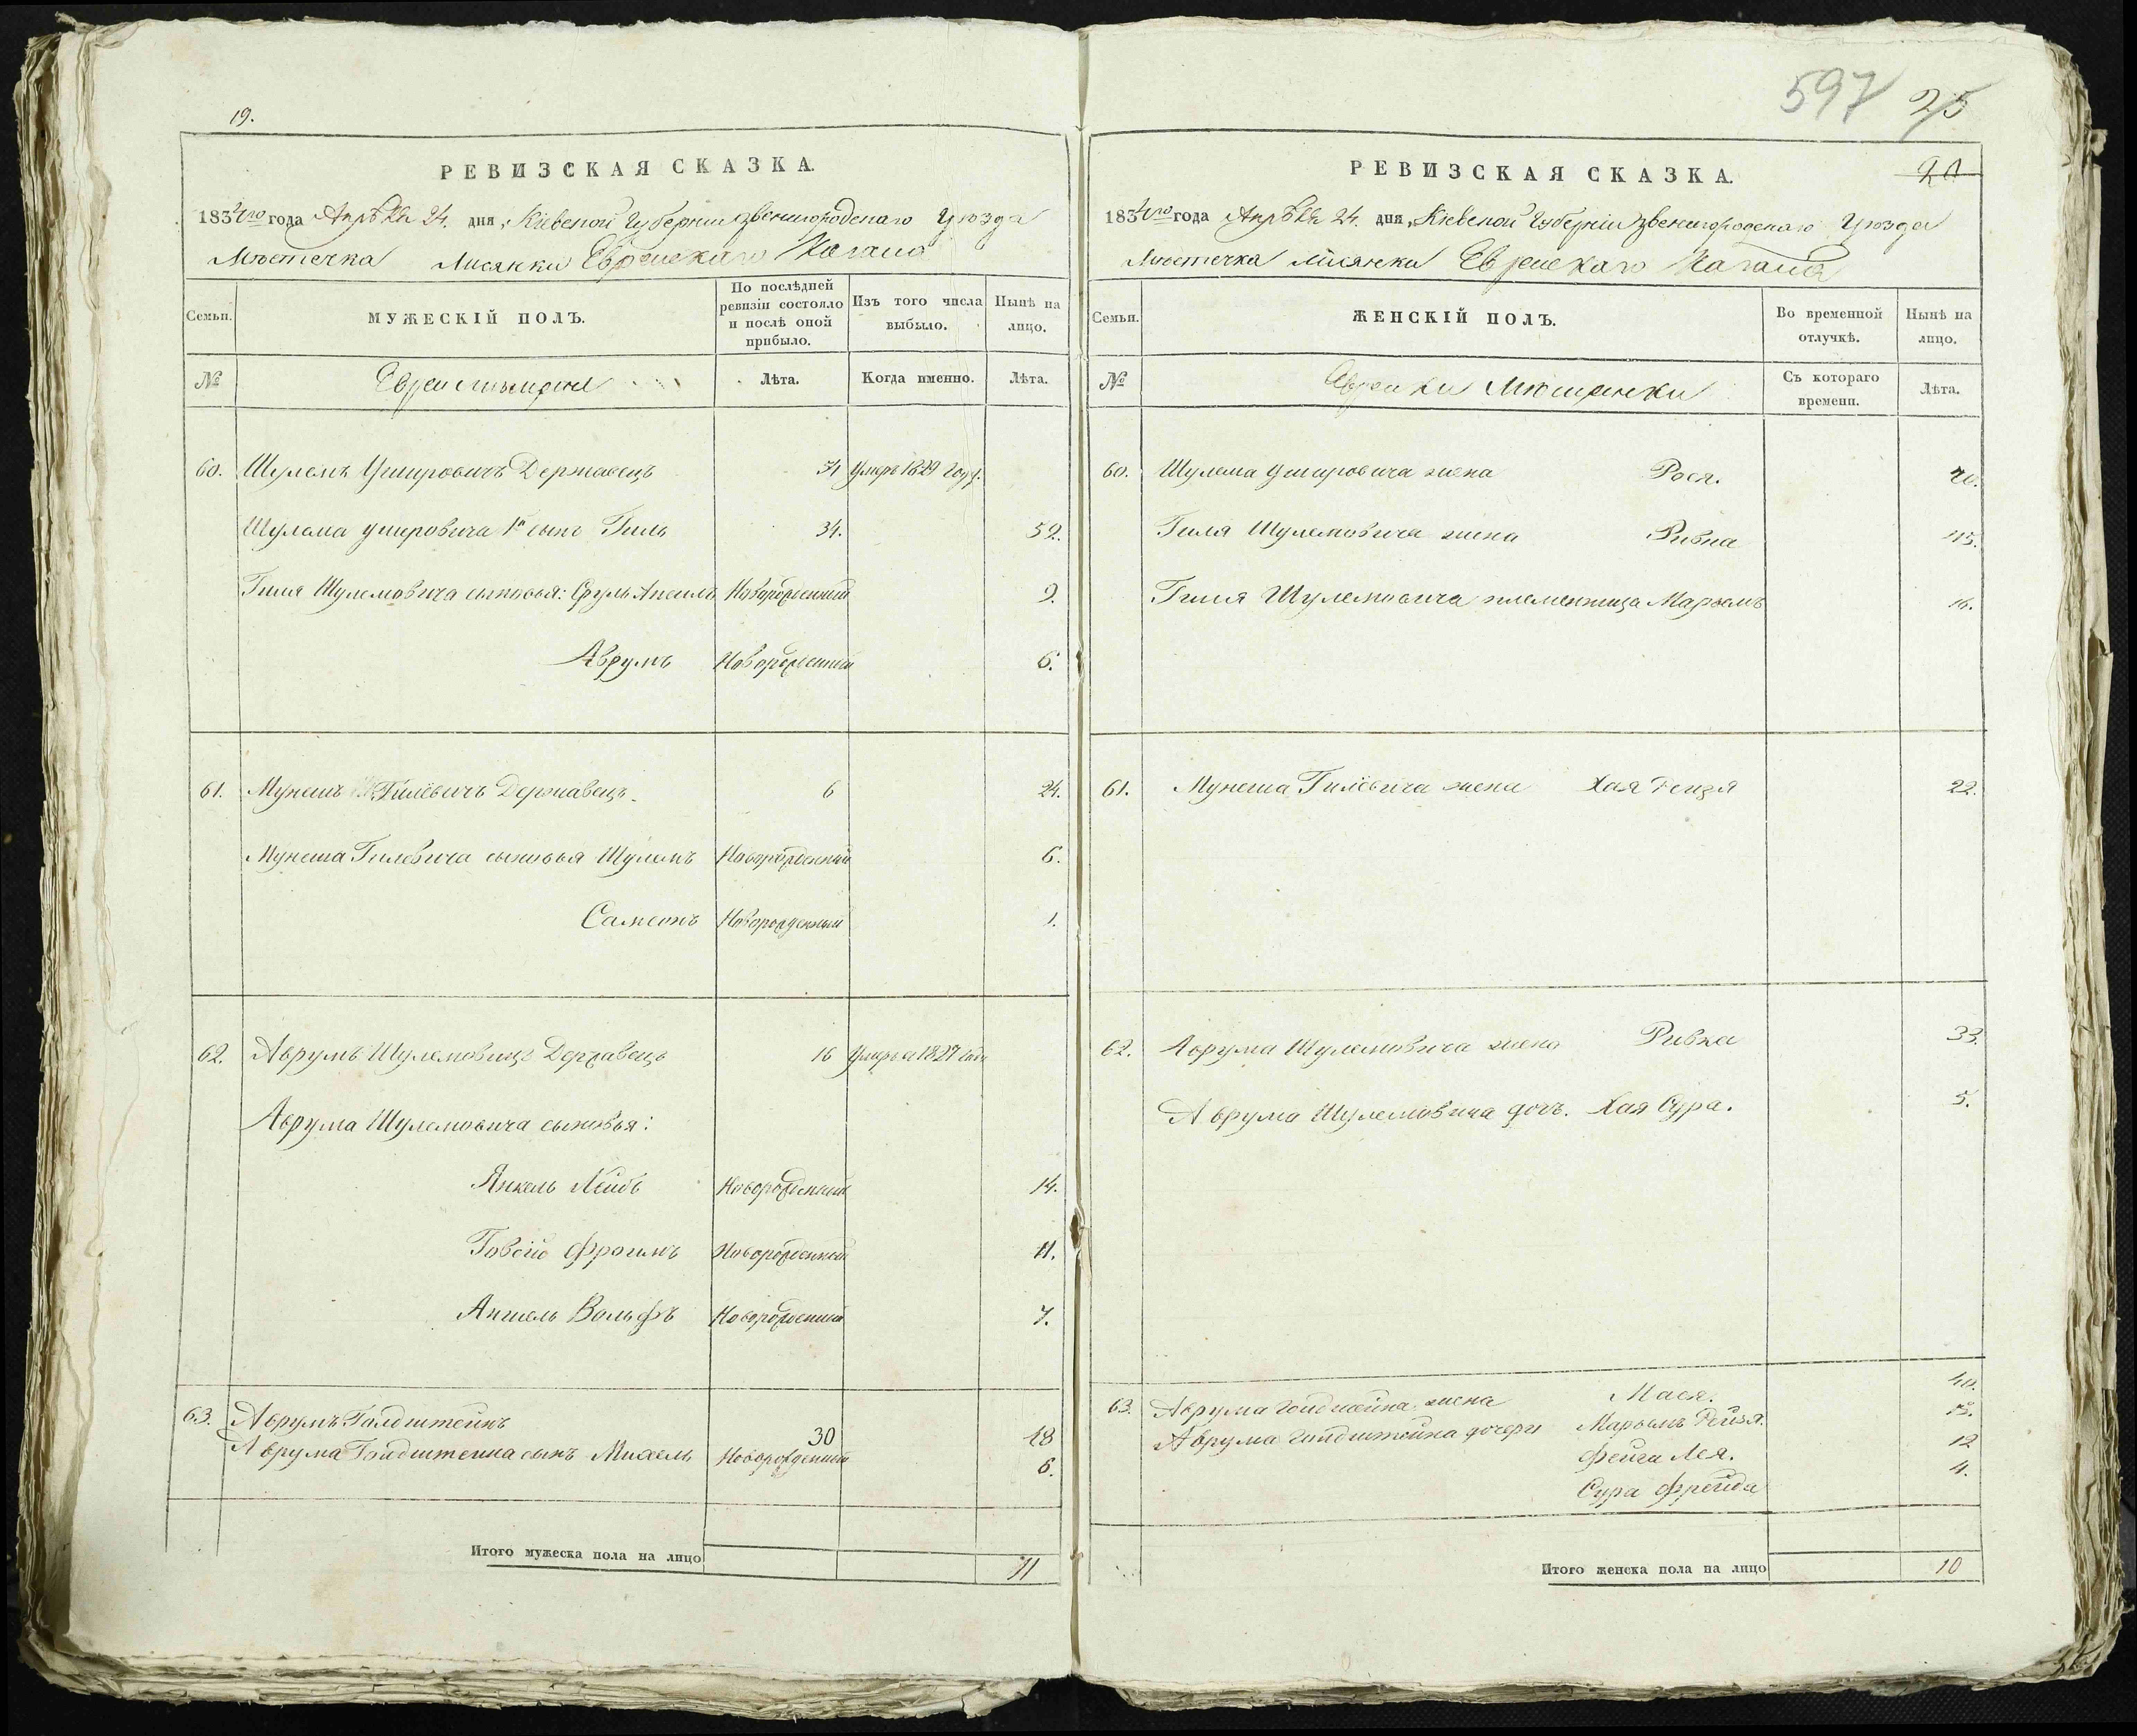 19.
РЕВИЗСКАЯ СКАЗКА.
1834го года Апрѣля 24. дня, Кіевской Губерніи Звенигородскаго Уѣзда
Мѣстечка Лисянки Еврейскаго Кагала
Семьи.
МУЖЕСКІЙ ПОЛЪ.
По послѣдней ревизіи состояло и послѣ оной прибыло.
Изъ того числа выбыло.
Нынѣ на лицо.
№
Евреи мѣщане
Лѣта.
Когда именно.
Лѣта.
60. Шулемъ Ушеровичъ Державецъ Умре 1829 году.
Шулема Ушеровича 1й сынъ Гиль 34. 52.
Гиля Шулемовича сыновья: Сруль Аншель Новорожденный 9.
Аврумъ Новорожденный 6.
61. Мунешъ Гилевичъ Державецъ 6 24.
Мунеша Гилевича сыновья Шулемъ Новорожденный 6.
Самсонъ Новорожденный 1.
62. Аврумъ Шулемовичъ Державецъ 16 Умре 1827 года
Аврума Шулемовича сыновья:
Янкель Лейбъ Новорожденный 14.
Говсій Фроимъ Новорожденный 11.
Аншель Вольфъ Новорожденный 7.
63. Аврумъ Голдштейнъ 30 48
Аврума Голдштейна сынъ Михель Новорожденный 6.
Итого мужеска пола на лицо 11
597 25
20
РЕВИЗСКАЯ СКАЗКА.
1834го года Апрѣля 24. дня, Кіевской Губерніи Звенигородскаго Уѣзда
Мѣстечка Лисянки Еврейскаго Кагала
Семьи.
ЖЕНСКІЙ ПОЛЪ.
Во временной отлучкѣ.
Нынѣ на лицо.
№
Еврейки Мѣщанки
Съ котораго времени.
Лѣта.
60. Шулема Ушеровича жена Рося. 70.
Гиля Шулемовича жена Ривка 45.
Гиля Шулемовича племенница Марьемъ 16.
61. Мунеша Гилевича жена Хая Рейзя 22.
62. Аврума Шулемовича жена Ривка 33.
Аврума Шулемовича дочь. Хая Сура. 5.
63. Аврума Голдштейна жена Мася. 40.
Аврума Голдштейна дочери Марьемъ Рейзя.
Фейга Лея. 12
Сура Фрейда 4.
Итого женска пола на лицо 10